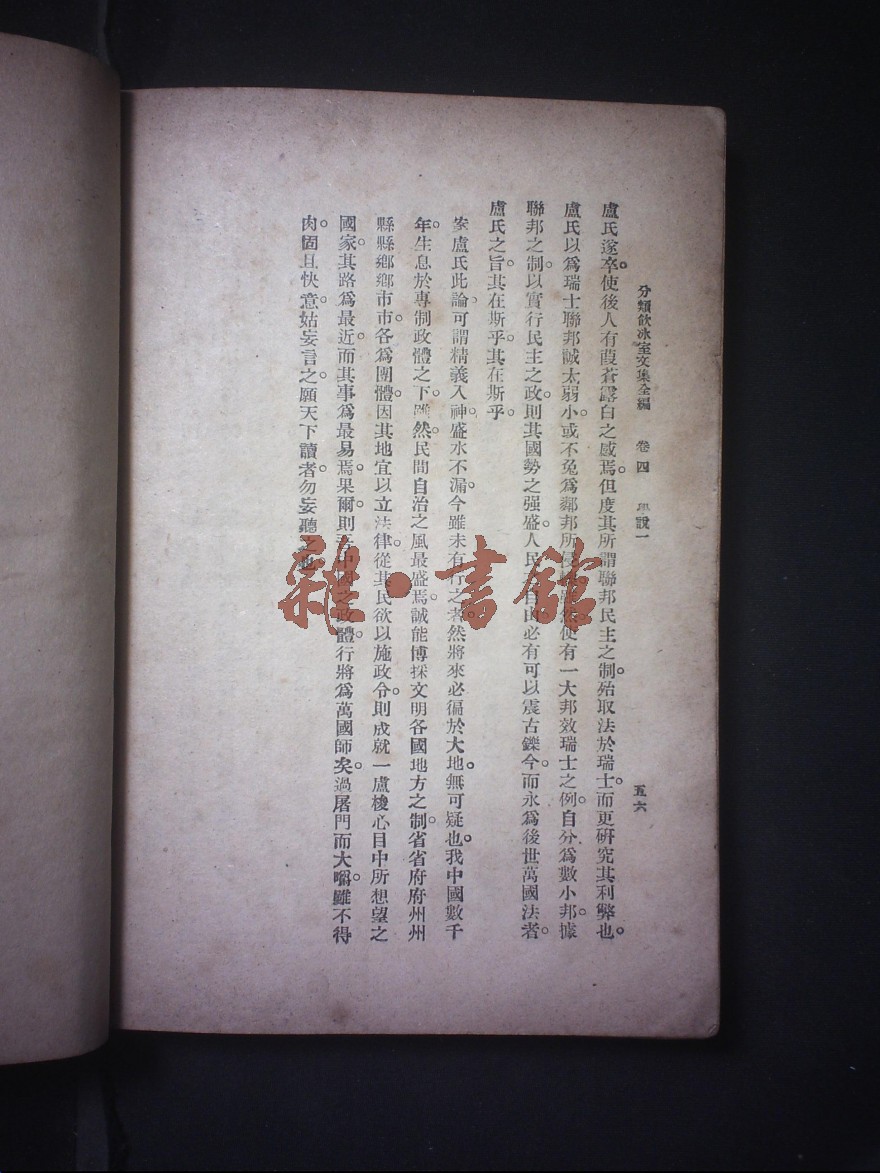 分類飲冰室文集全編　卷四　學說一　五六
盧氏遂卒。使後人有葭蒼露白之感焉。但度其所謂聯邦民主之制。殆取法於瑞士。而更研究其利弊也。
盧氏以爲瑞士聯邦誠太弱小。或不免爲鄰邦所侵。雖然。使有一大邦效瑞士之例。自分爲數小邦。據
聯邦之制。以實行民主之政。則其國勢之强盛。人民之自由。必有可以震古鑠今。而永爲後世萬國法者。
盧氏之旨。其在斯乎。其在斯乎。
案盧氏此論。可謂精義入神。盛水不漏。今雖未有行之者。然將來必徧於大地。無可疑也。我中國數千
年生息於專制政體之下。雖然。民間自治之風最盛焉。誠能博採文明各國地方之制。省省府府州州
縣縣鄉鄉市市。各爲團體。因其地宜以立法律。從其民欲以施政令。則成就一盧梭心目中所想望之
國家。其路爲最近。而其事爲最易焉。果爾。則吾中國之政體。行將爲萬國師矣。過屠門而大嚼。雖不得
肉。固且快意。姑妄言之。願天下讀者。勿妄聽之也。
雜·書館